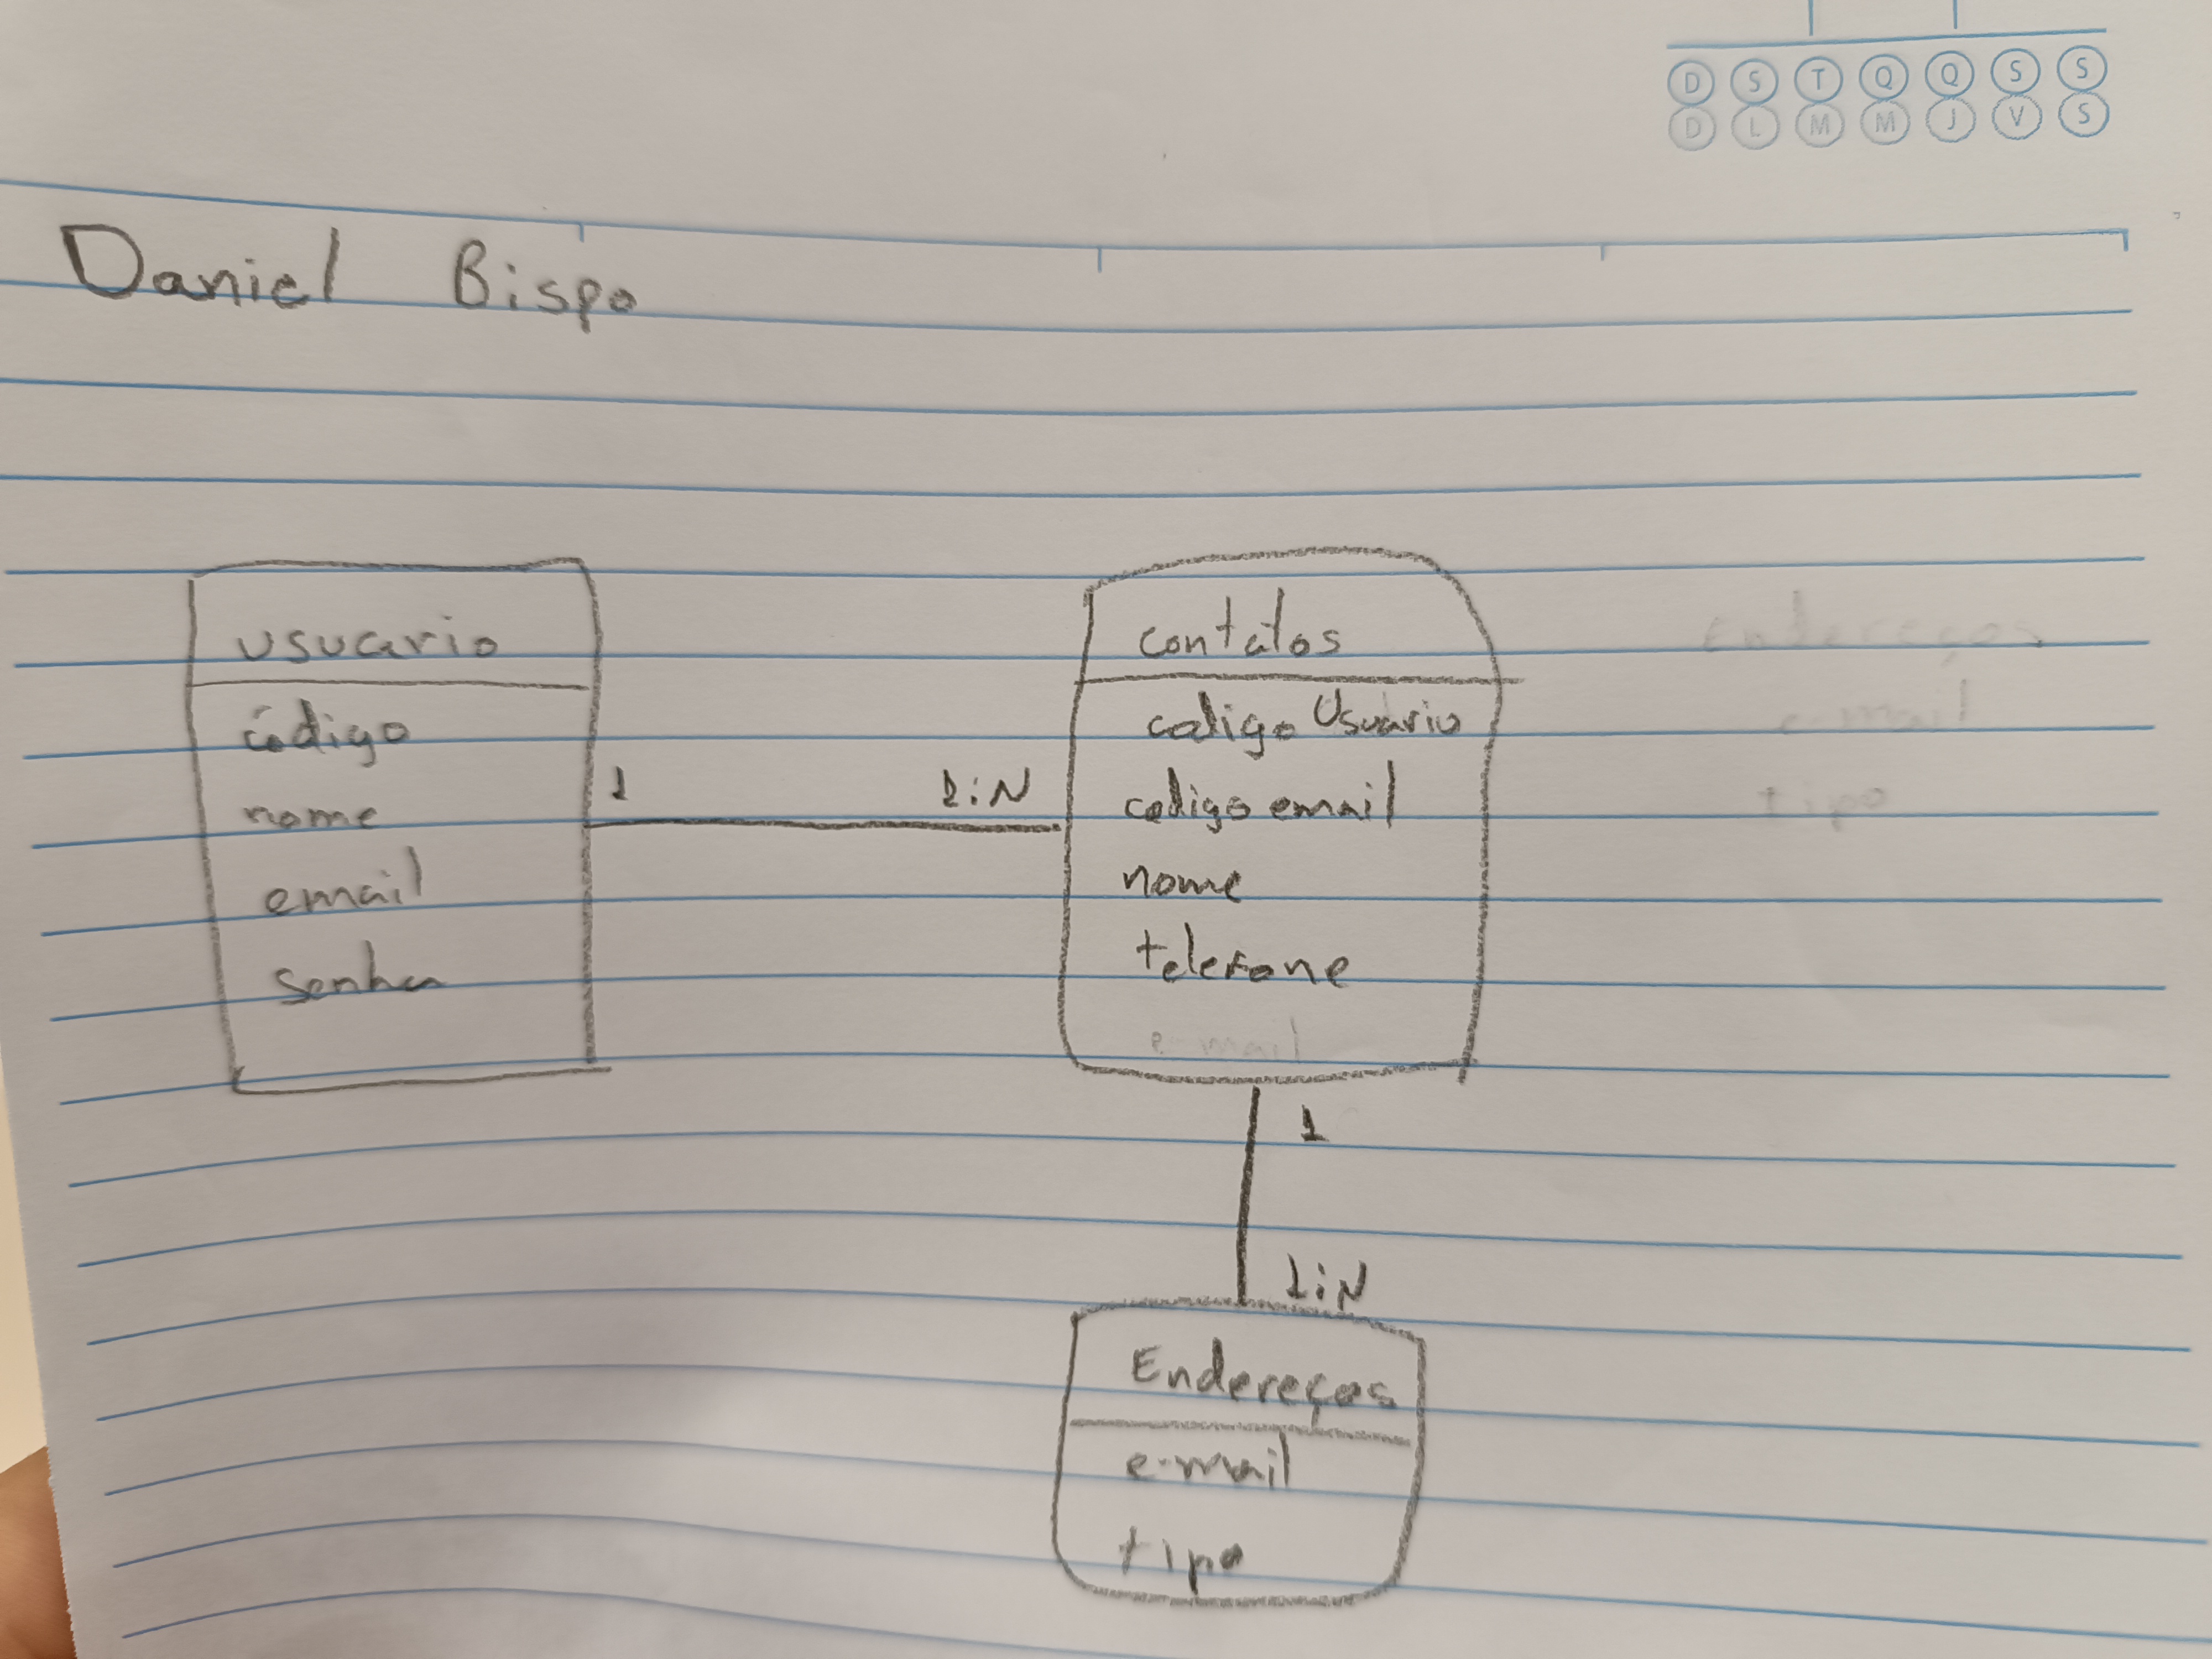 D S T Q Q S S
D L M M J V S
Daniel Bispo
usuario
código
nome
email
senha
1 1:N
contatos
codigo Usuario
codigo email
nome
telefone
e-mail
1
1:N
Endereços
e-mail
tipo
Endereços
e-mail
tipo